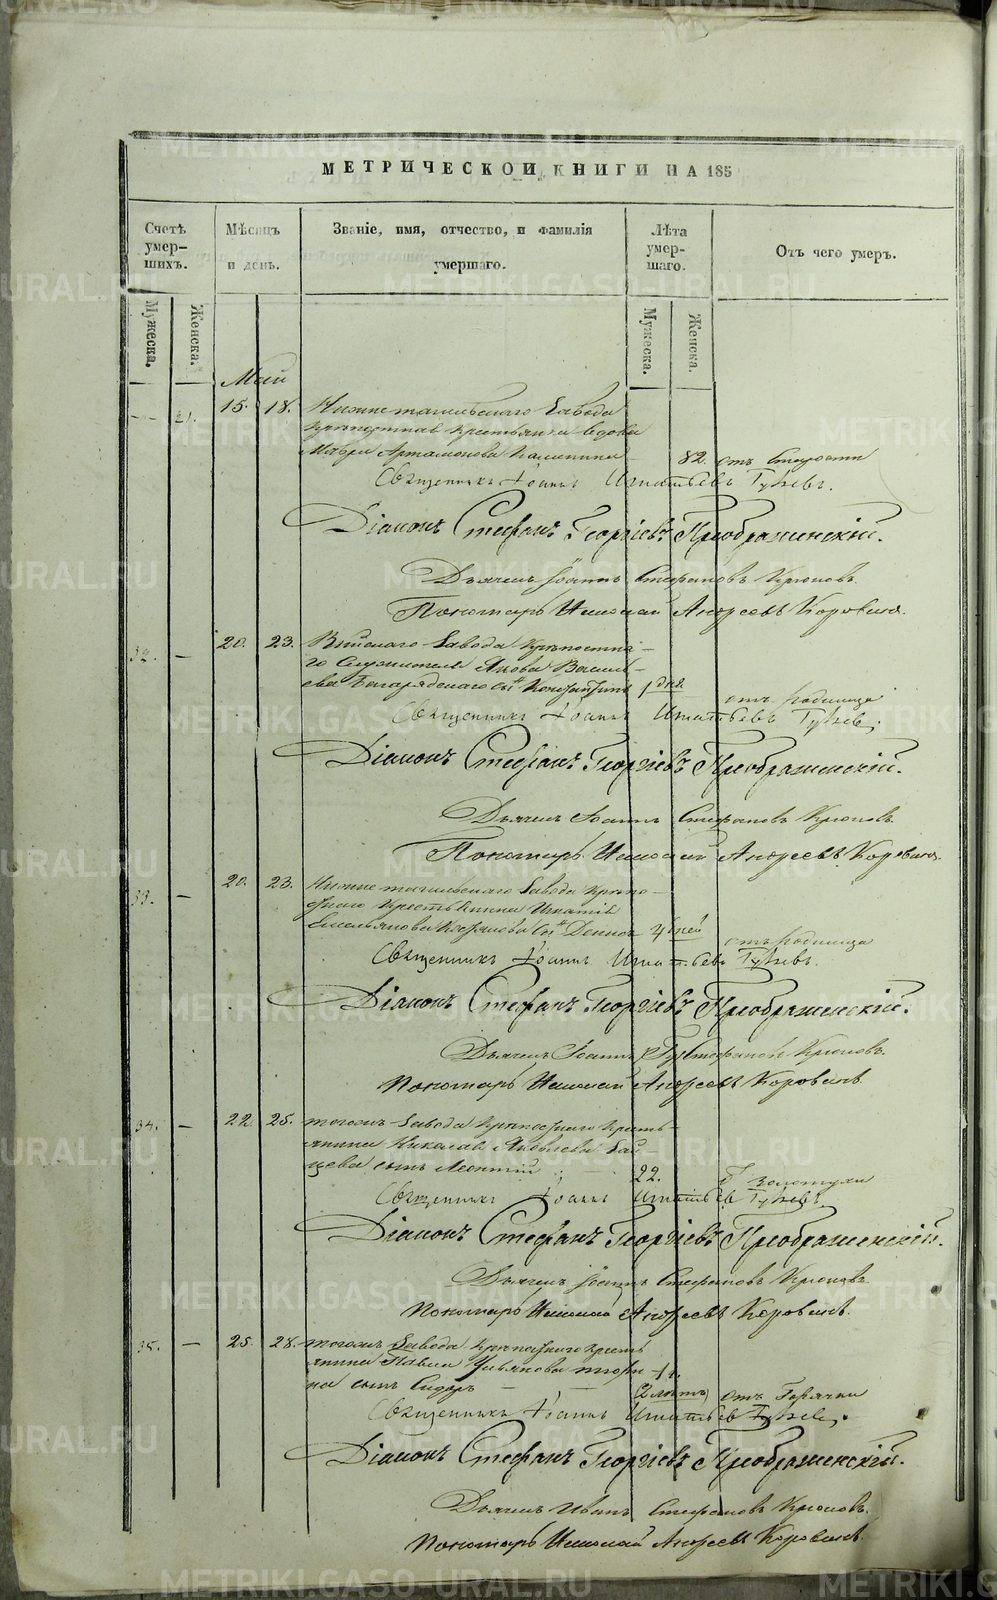 МЕТРИЧЕСКОЙ КНИГИ НА 185
Счетъ умер-шихъ.
Мѣсяцъ и день.
Званіе, имя, отчество, и фамилія умершаго.
Лѣта умер-шаго.
Отъ чего умеръ.
Мужеска.
Женска.
Мужеска.
Женска.
Май
21. 15. 18. Нижнетагильскаго Завода
крѣпостная крестьянка вдова
Мавра Артамонова 82. отъ Старости
Священникъ Іоаннъ Игнатьевъ
Діаконъ Стефанъ Георгіевъ Преображенскій.
Дьячекъ Іоаннъ Стефановъ Крюковъ.
Пономарь Николай Андреевъ Коровинъ.
32. — 20. 23. Выйскаго Завода Крѣпостна-
го Служителя Якова Василь-
ева сы Константинъ 1 дня. отъ родимца
Священникъ Іоаннъ Игнатьевъ
Діаконъ Стефанъ Георгіевъ Преображенскій.
Дьячекъ Іоаннъ Стефановъ Крюковъ.
Пономарь Николай Андреевъ Коровинъ.
33. — 20. 23. Нижнетагильскаго Завода Крѣпо-
стнаго Крестьянина Игнатія
Емельянова сы 4 дней отъ родимца
Священникъ Іоаннъ Игнатьевъ
Діаконъ Стефанъ Георгіевъ Преображенскій.
Дьячекъ Іоаннъ Стефановъ Крюковъ.
Пономарь Николай Андреевъ Коровинъ.
34. — 22. 25. тогожъ Завода Крѣпостнаго Кресть-
янина Николая Яковлева Зай-
цева сынъ Леонтій 22. золотухи
Священникъ Іоаннъ Игнатьевъ
Діаконъ Стефанъ Георгіевъ Преображенскій.
Дьячекъ Іоаннъ Стефановъ Крюковъ
Пономарь Николай Андреевъ Коровинъ.
35. — 25. 28. тогожъ Завода Крѣпостнаго Кресть
янина Павла Ульянова
на сынъ Сидоръ — — 2 лѣтъ отъ Горячки
Священникъ Іоаннъ Игнатьевъ
Діаконъ Стефанъ Георгіевъ Преображенскій.
Дьячекъ Иванъ Стефановъ Крюковъ.
Пономарь Николай Андреевъ Коровинъ.
METRIKI.GASO-URAL.RU